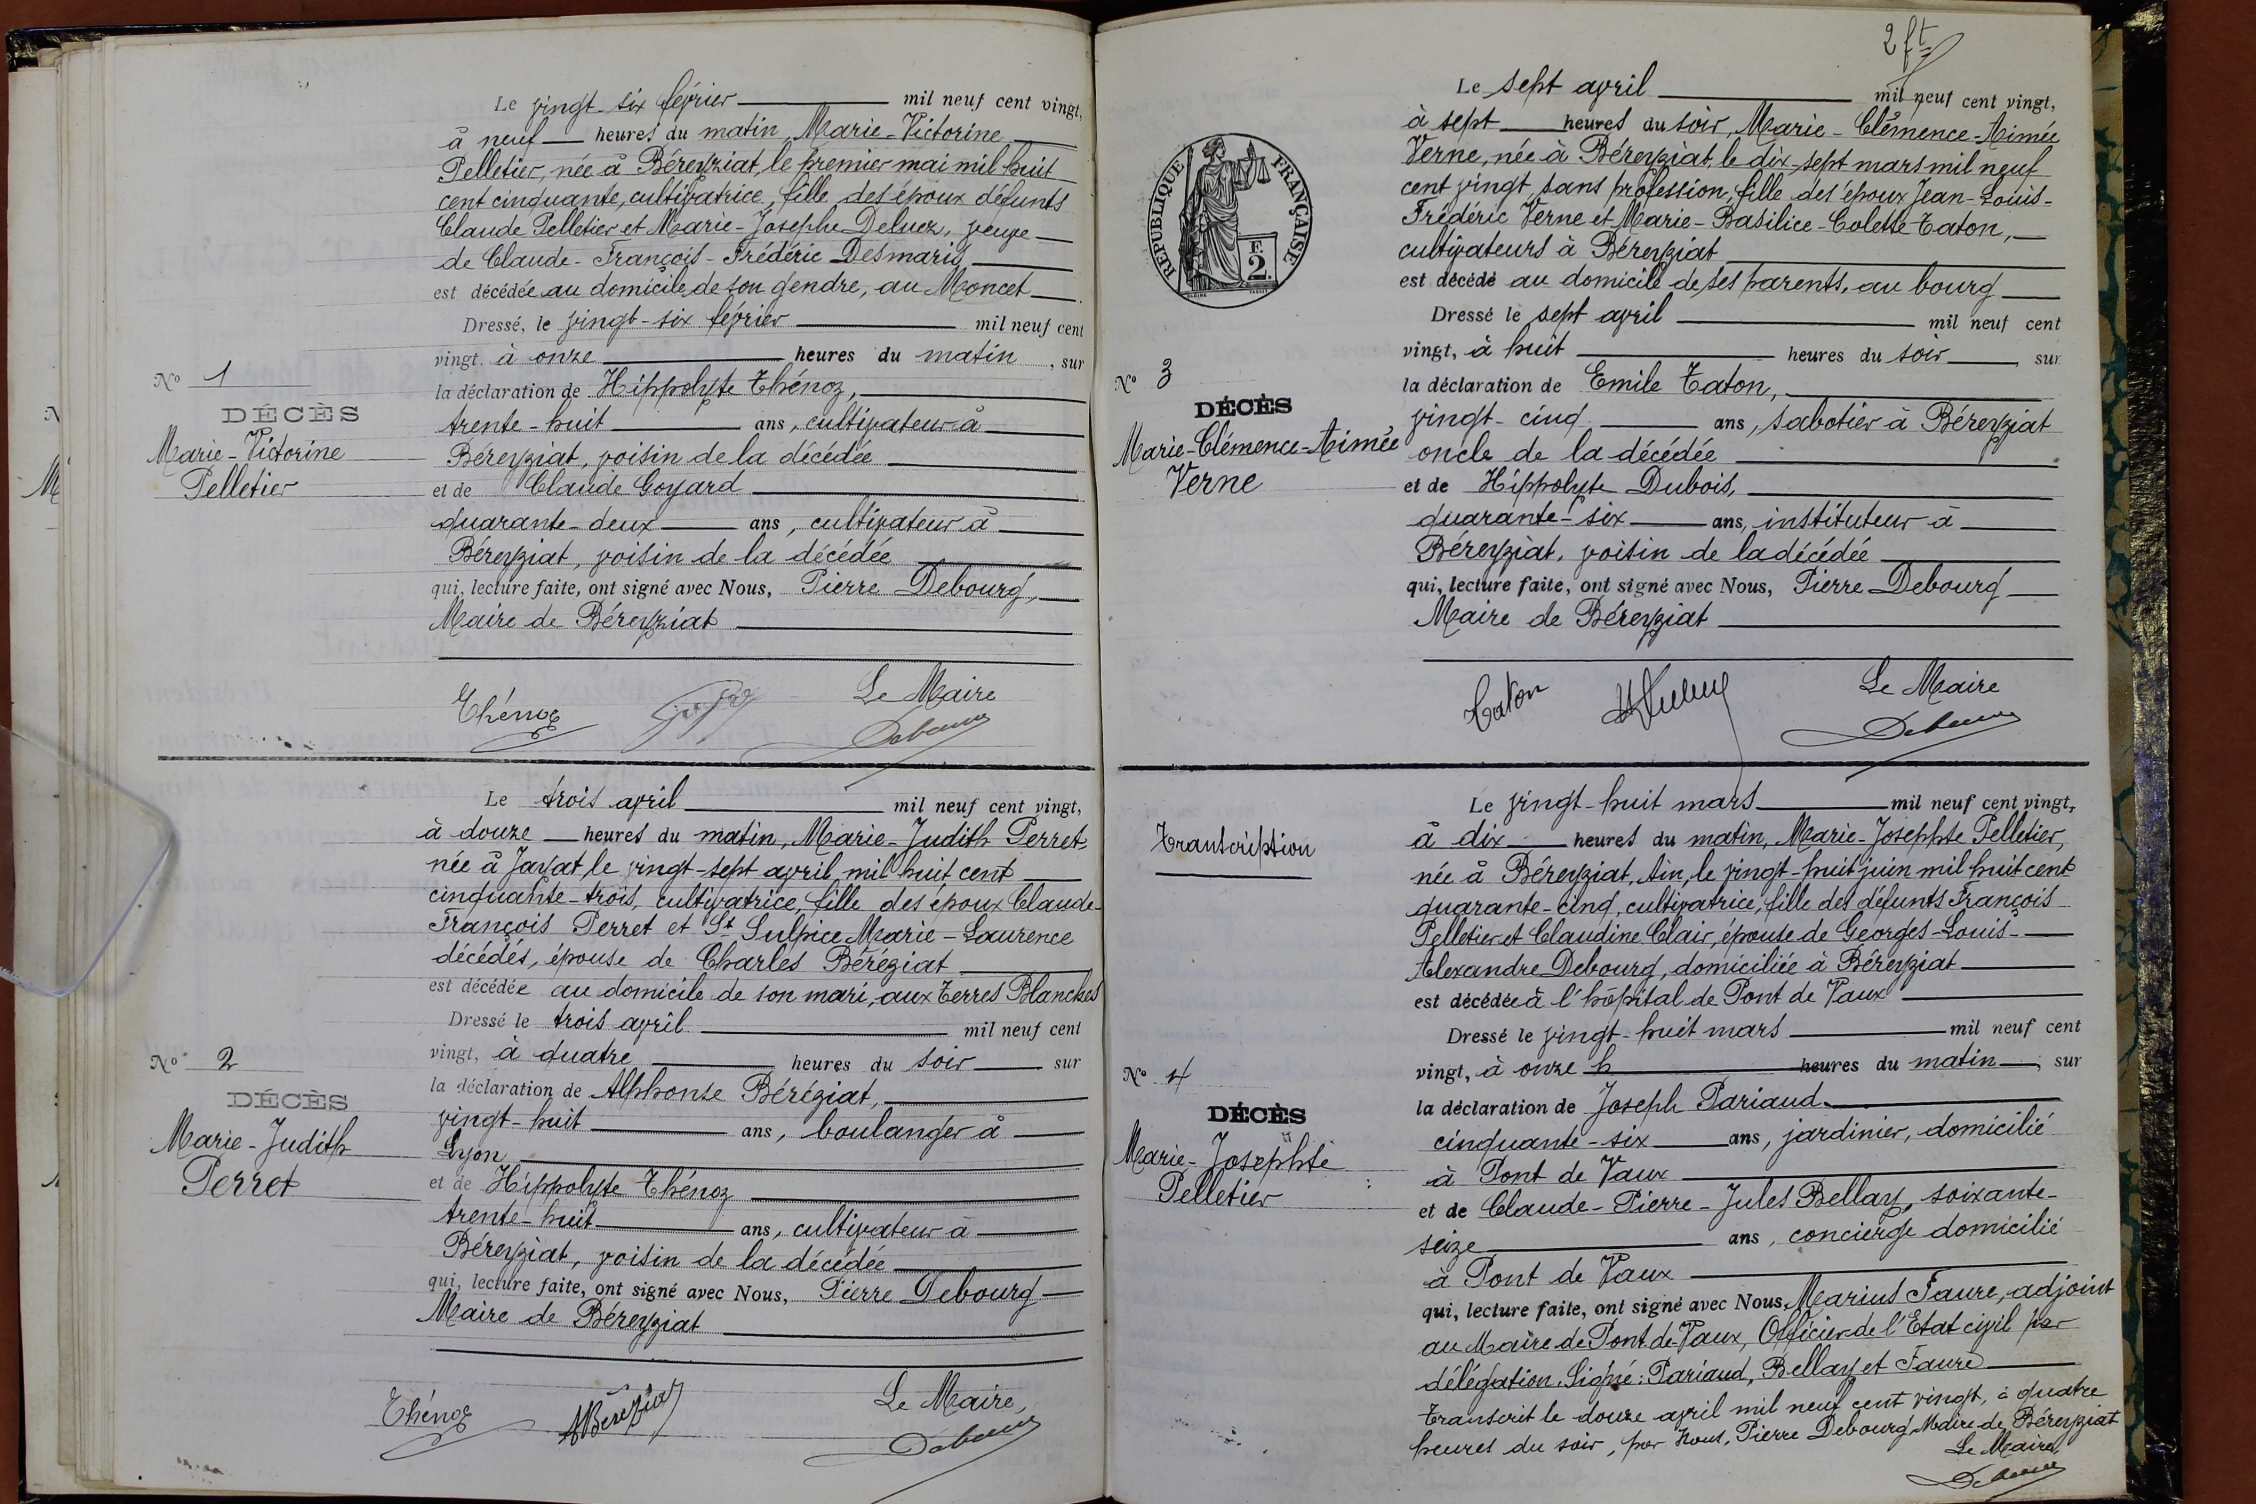 Le vingt-six février mil neuf cent vingt,
à neuf heures du matin, Marie-Victorine
Pelletier, née à Béreyziat, le premier mai mil huit
cent cinquante, cultivatrice, fille des époux défunts
Claude Pelletier et Marie-Josephe Deluez, veuve
de Claude-François-Frédéric Desmaris,
est décédée au domicile de son gendre, au Moncet
Dressé, le vingt-six février mil neuf cent
vingt, à onze heures du matin, sur
la déclaration de Hippolyte Thénoz,
trente-huit ans, cultivateur à
Béreyziat, voisin de la décédée
et de Claude Goyard
quarante-deux ans, cultivateur à
Béreyziat, voisin de la décédée
qui, lecture faite, ont signé avec Nous, Pierre Debourg,
Maire de Béreyziat
Nº 1
DÉCÈS
Marie-Victorine
Pelletier
Thénoz Le Maire
Debourg
Le trois avril mil neuf cent vingt,
à douze heures du matin, Marie-Judith Perret,
née à Jayat, le vingt-sept avril mil huit cent
cinquante-trois, cultivatrice, fille des époux Claude-
François Perret et St Sulpice Marie-Laurence
décédés, épouse de Charles Béréziat
est décédée au domicile de son mari, aux Terres Blanches
Dressé le trois avril mil neuf cent
vingt, à quatre heures du soir sur
la déclaration de Alphonse Béréziat,
vingt-huit ans, boulanger à
Lyon
et de Hippolyte Thénoz
trente-huit ans, cultivateur à
Béreyziat, voisin de la décédée
qui, lecture faite, ont signé avec Nous, Pierre Debourg
Maire de Béreyziat
Nº 2
DÉCÈS
Marie-Judith
Perret
Thénoz ABéréziat Le Maire,
Debourg
2 ft
RÉPUBLIQUE FRANÇAISE
F.
2.
Le sept avril mil neuf cent vingt,
à sept heures du soir, Marie-Clémence-Aimée
Verne, née à Béreyziat, le dix-sept mars mil neuf
cent vingt, sans profession, fille des époux Jean-Louis-
Frédéric Verne et Marie-Basilice-Colette Taton,
cultivateurs à Béreyziat
est décédé au domicile de ses parents, au bourg
Dressé le sept avril mil neuf cent
vingt, à huit heures du soir, sur
la déclaration de Emile Taton,
vingt-cinq ans, sabotier à Béreyziat
oncle de la décédée
et de Hippolyte Dubois,
quarante-six ans, instituteur à
Béreyziat, voisin de la décédée
qui, lecture faite, ont signé avec Nous, Pierre Debourg
Maire de Béreyziat
Nº 3
DÉCÈS
Marie-Clémence-Aimée
Verne
Taton Le Maire
Debourg
Transcription
Le vingt-huit mars mil neuf cent vingt,
à dix heures du matin, Marie-Josephte Pelletier,
née à Béreyziat, Ain, le vingt-huit juin mil huit cent
quarante-cinq, cultivatrice, fille des défunts François
Pelletier et Claudine Clair, épouse de Georges-Louis-
Alexandre Debourg, domiciliée à Béreyziat
est décédée à l'hôpital de Pont de Vaux
Dressé le vingt-huit mars mil neuf cent
vingt, à onze h heures du matin, sur
la déclaration de Joseph Pariaud
cinquante-six ans, jardinier, domicilié
à Pont de Vaux
et de Claude-Pierre-Jules Bellay, soixante-
seize ans, concierge domicilié
à Pont de Vaux
qui, lecture faite, ont signé avec Nous, Marius Faure, adjoint
au Maire de Pont-de-Vaux, Officier de l'Etat civil par
délégation. Signé: Pariaud, Bellay et Faure
Transcrit le douze avril mil neuf cent vingt, à quatre
heures du soir, par Nous, Pierre Debourg Maire de Béreyziat
Le Maire,
Debourg
Nº 4
DÉCÈS
Marie-Josephte
Pelletier